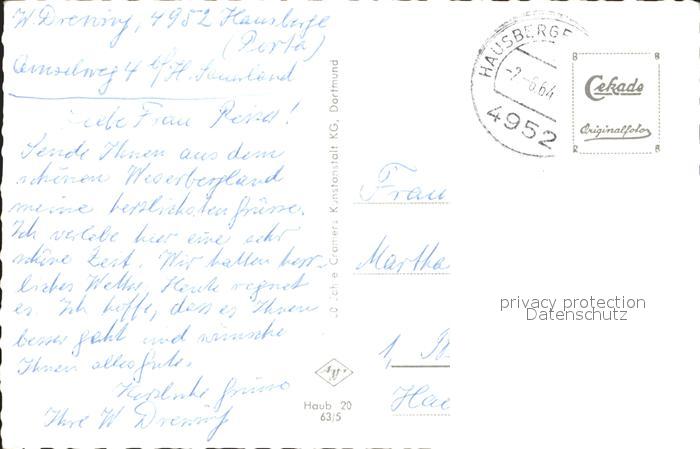 W. Drening, 4952 Hausberge
(Porta)
Amselweg 4 b/H. Sauerland
Liebe Frau
Sende Ihnen aus dem
schönen Weserbergland
meine herzlichsten Grüsse.
Ich verlebe hier eine sehr
schöne Zeit. Wir hatten herr-
liches Wetter, Heute regnet
es. Ich hoffe, dass es Ihnen
besser geht und wünsche
Ihnen alles Gute.
Herzliche Grüsse
Ihre W. Drening
Cramers Kunstanstalt KG, Dortmund
Haub 20
63/5
HAUSBERGE
-2.-6.64
4952
Cekade
Originalfoto
Frau
Martha
1,
privacy protection
Datenschutz